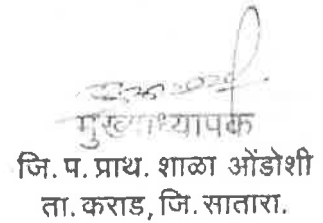 मुख्याध्यापक
जि. प. प्राथ. शाळा ओंडोशी
ता. कराड, जि. सातारा.